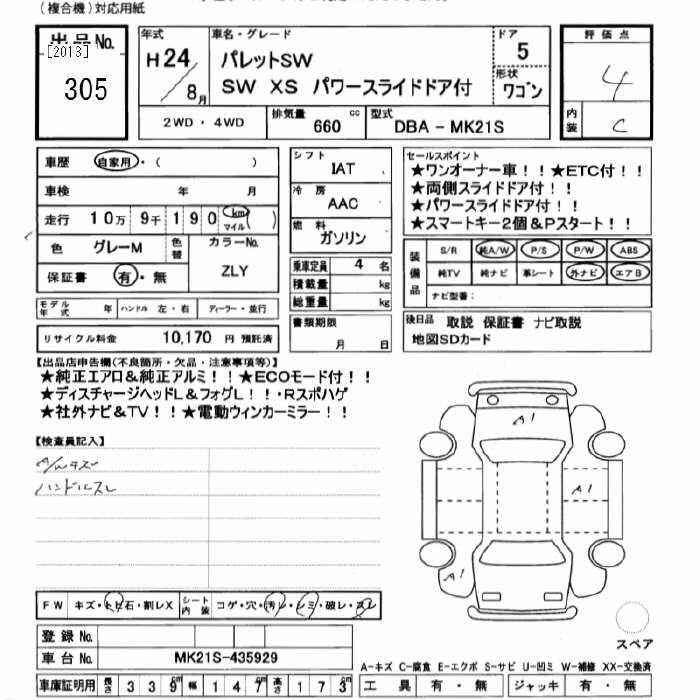 (複合機)対応用紙
出品No.
[2013]
305
年式
H24/8月
車名・グレード
パレットSW
SW XS パワースライドドア付
ドア
5
形状
ワゴン
評価点
4
内装
C
2WD・4WD
排気量 660 cc
型式 DBA-MK21S
車歴 自家用・( )
車検 年 月
走行 10万 9千 190 km マイル ( )
色 グレーM 色替 カラーNo. ZLY
保証書 有・無
モデル年式 年 ハンドル 左・右 ディーラー・並行
リサイクル料金 10,170 円 預託済
シフト IAT
冷房 AAC
燃料 ガソリン
乗車定員 4 名
積載量 kg
総重量 kg
書類期限 月 日
セールスポイント
★ワンオーナー車!!★ETC付!!
★両側スライドドア付!!
★パワースライドドア付!!
★スマートキー2個&Pスタート!!
装備品
S/R 純A/W P/S P/W ABS
純TV 純ナビ 革シート 外ナビ エアB
ナビ型番:
後日品 取説 保証書 ナビ取説
地図SDカード
【出品店申告欄(不良箇所・欠品・注意事項等)】
★純正エアロ&純正アルミ!!★ECOモード付!!
★ディスチャージヘッドL&フォグL!!・Rスポハゲ
★社外ナビ&TV!!★電動ウィンカーミラー!!
【検査員記入】
A/Wキズ
ハンドルスレ
A1
A1
A1
スペア
FW キズ・トビ石・割レX シート内装 コゲ・穴・汚レ・シミ・破レ・スレ
登録No.
車台No. MK21S-435929
A-キズ C-腐食 E-エクボ S-サビ U-凹ミ W-補修 XX-交換済
車庫証明用 長さ 339cm 幅 147cm 高さ 173cm 工具 有・無 ジャッキ 有・無